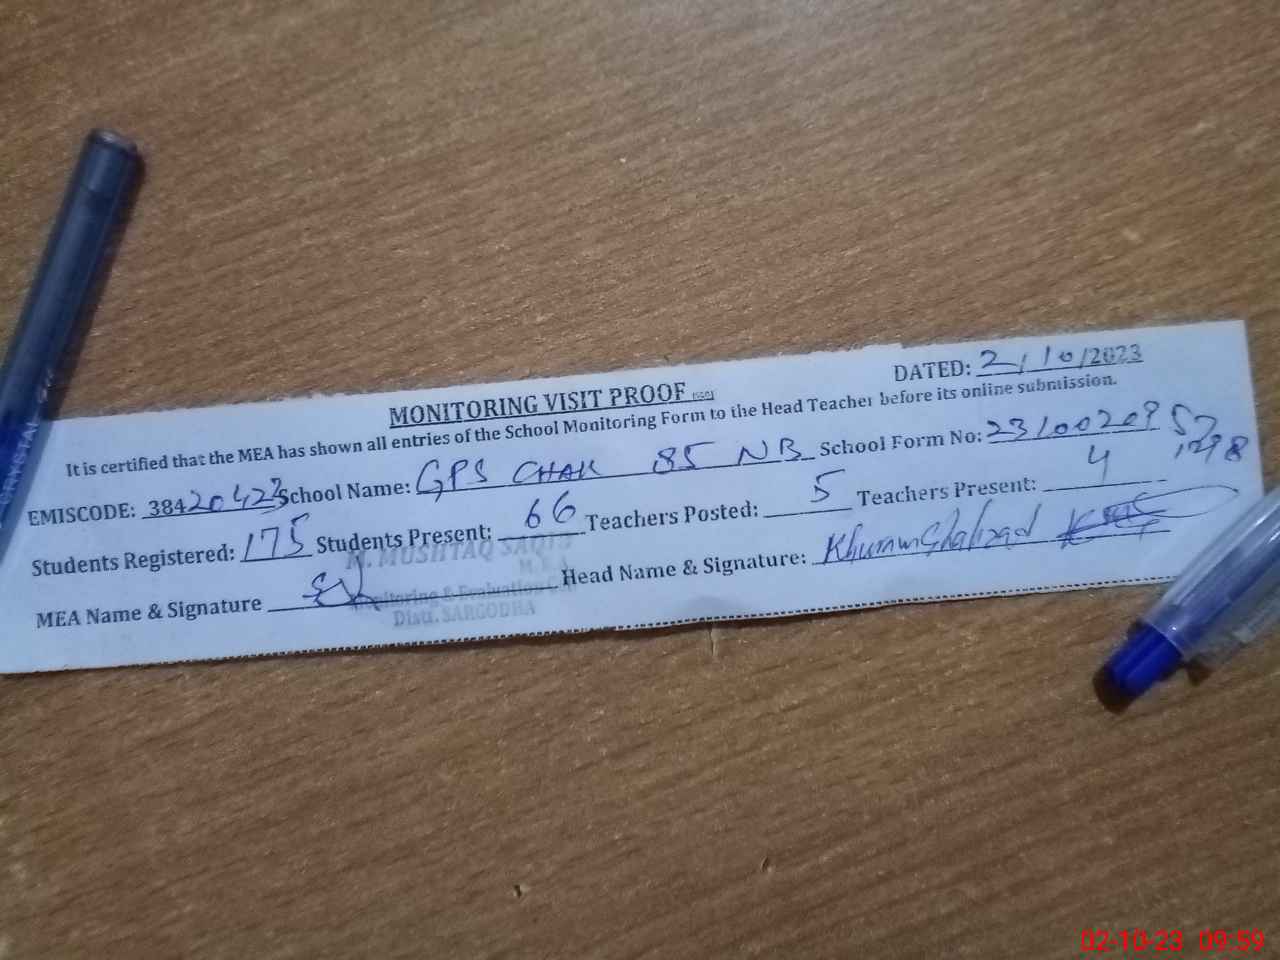 CRYSTAL
MONITORING VISIT PROOF
DATED: 2/10/2023
It is certified that the MEA has shown all entries of the School Monitoring Form to the Head Teacher before its online submission.
EMISCODE: 38420423 School Name: GPS CHAK 85 NB School Form No: 23100209 57
1298
Students Registered: 175 Students Present: 66 Teachers Posted: 5 Teachers Present: 4
M. MUSHTAQ SAQIB
M.E.A
MEA Name & Signature Head Name & Signature: Khuram Shahzad
Monitoring & Evaluation
Distt. SARGODHA
02-10-23 09:59